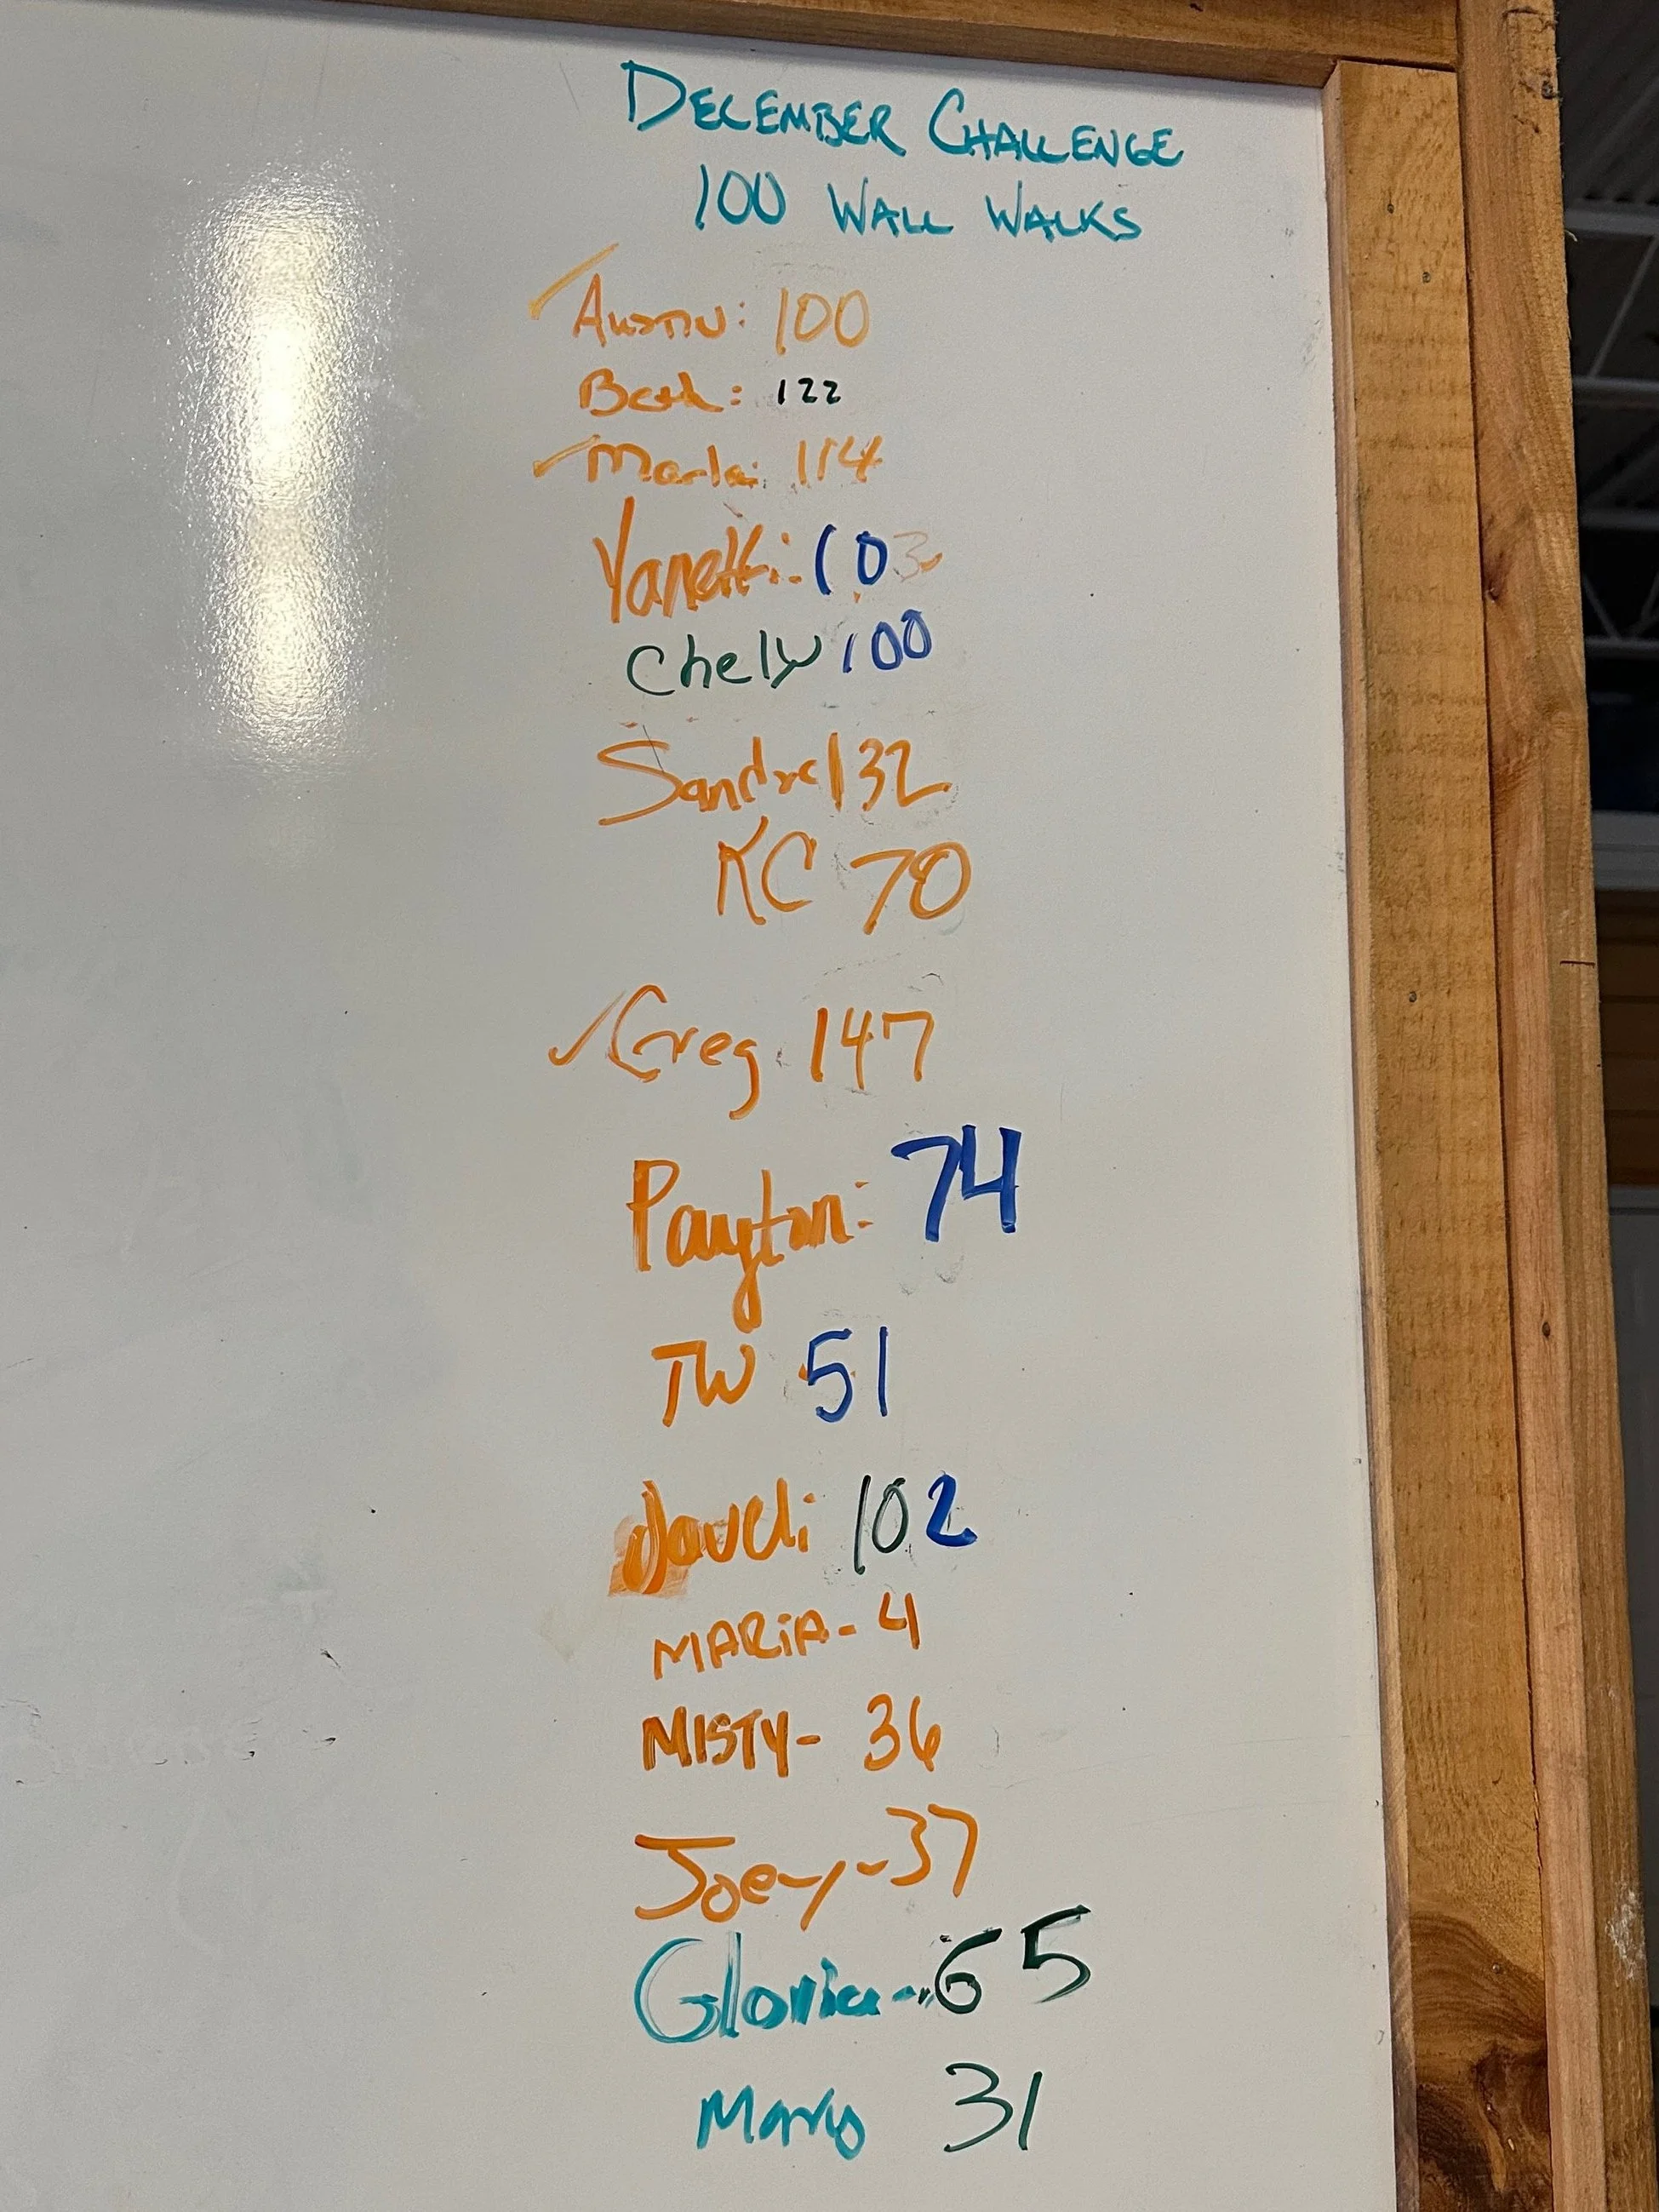 DECEMBER CHALLENGE
100 WALL WALKS
Austin: 100
Beth: 122
Marla: 114
Yanetti: 103
Chely 100
Sandra 132
KC 70
Greg 147
Payton: 74
TW 51
102
MARiA- 4
MISTY- 36
Joey-37
Gloria-65
31